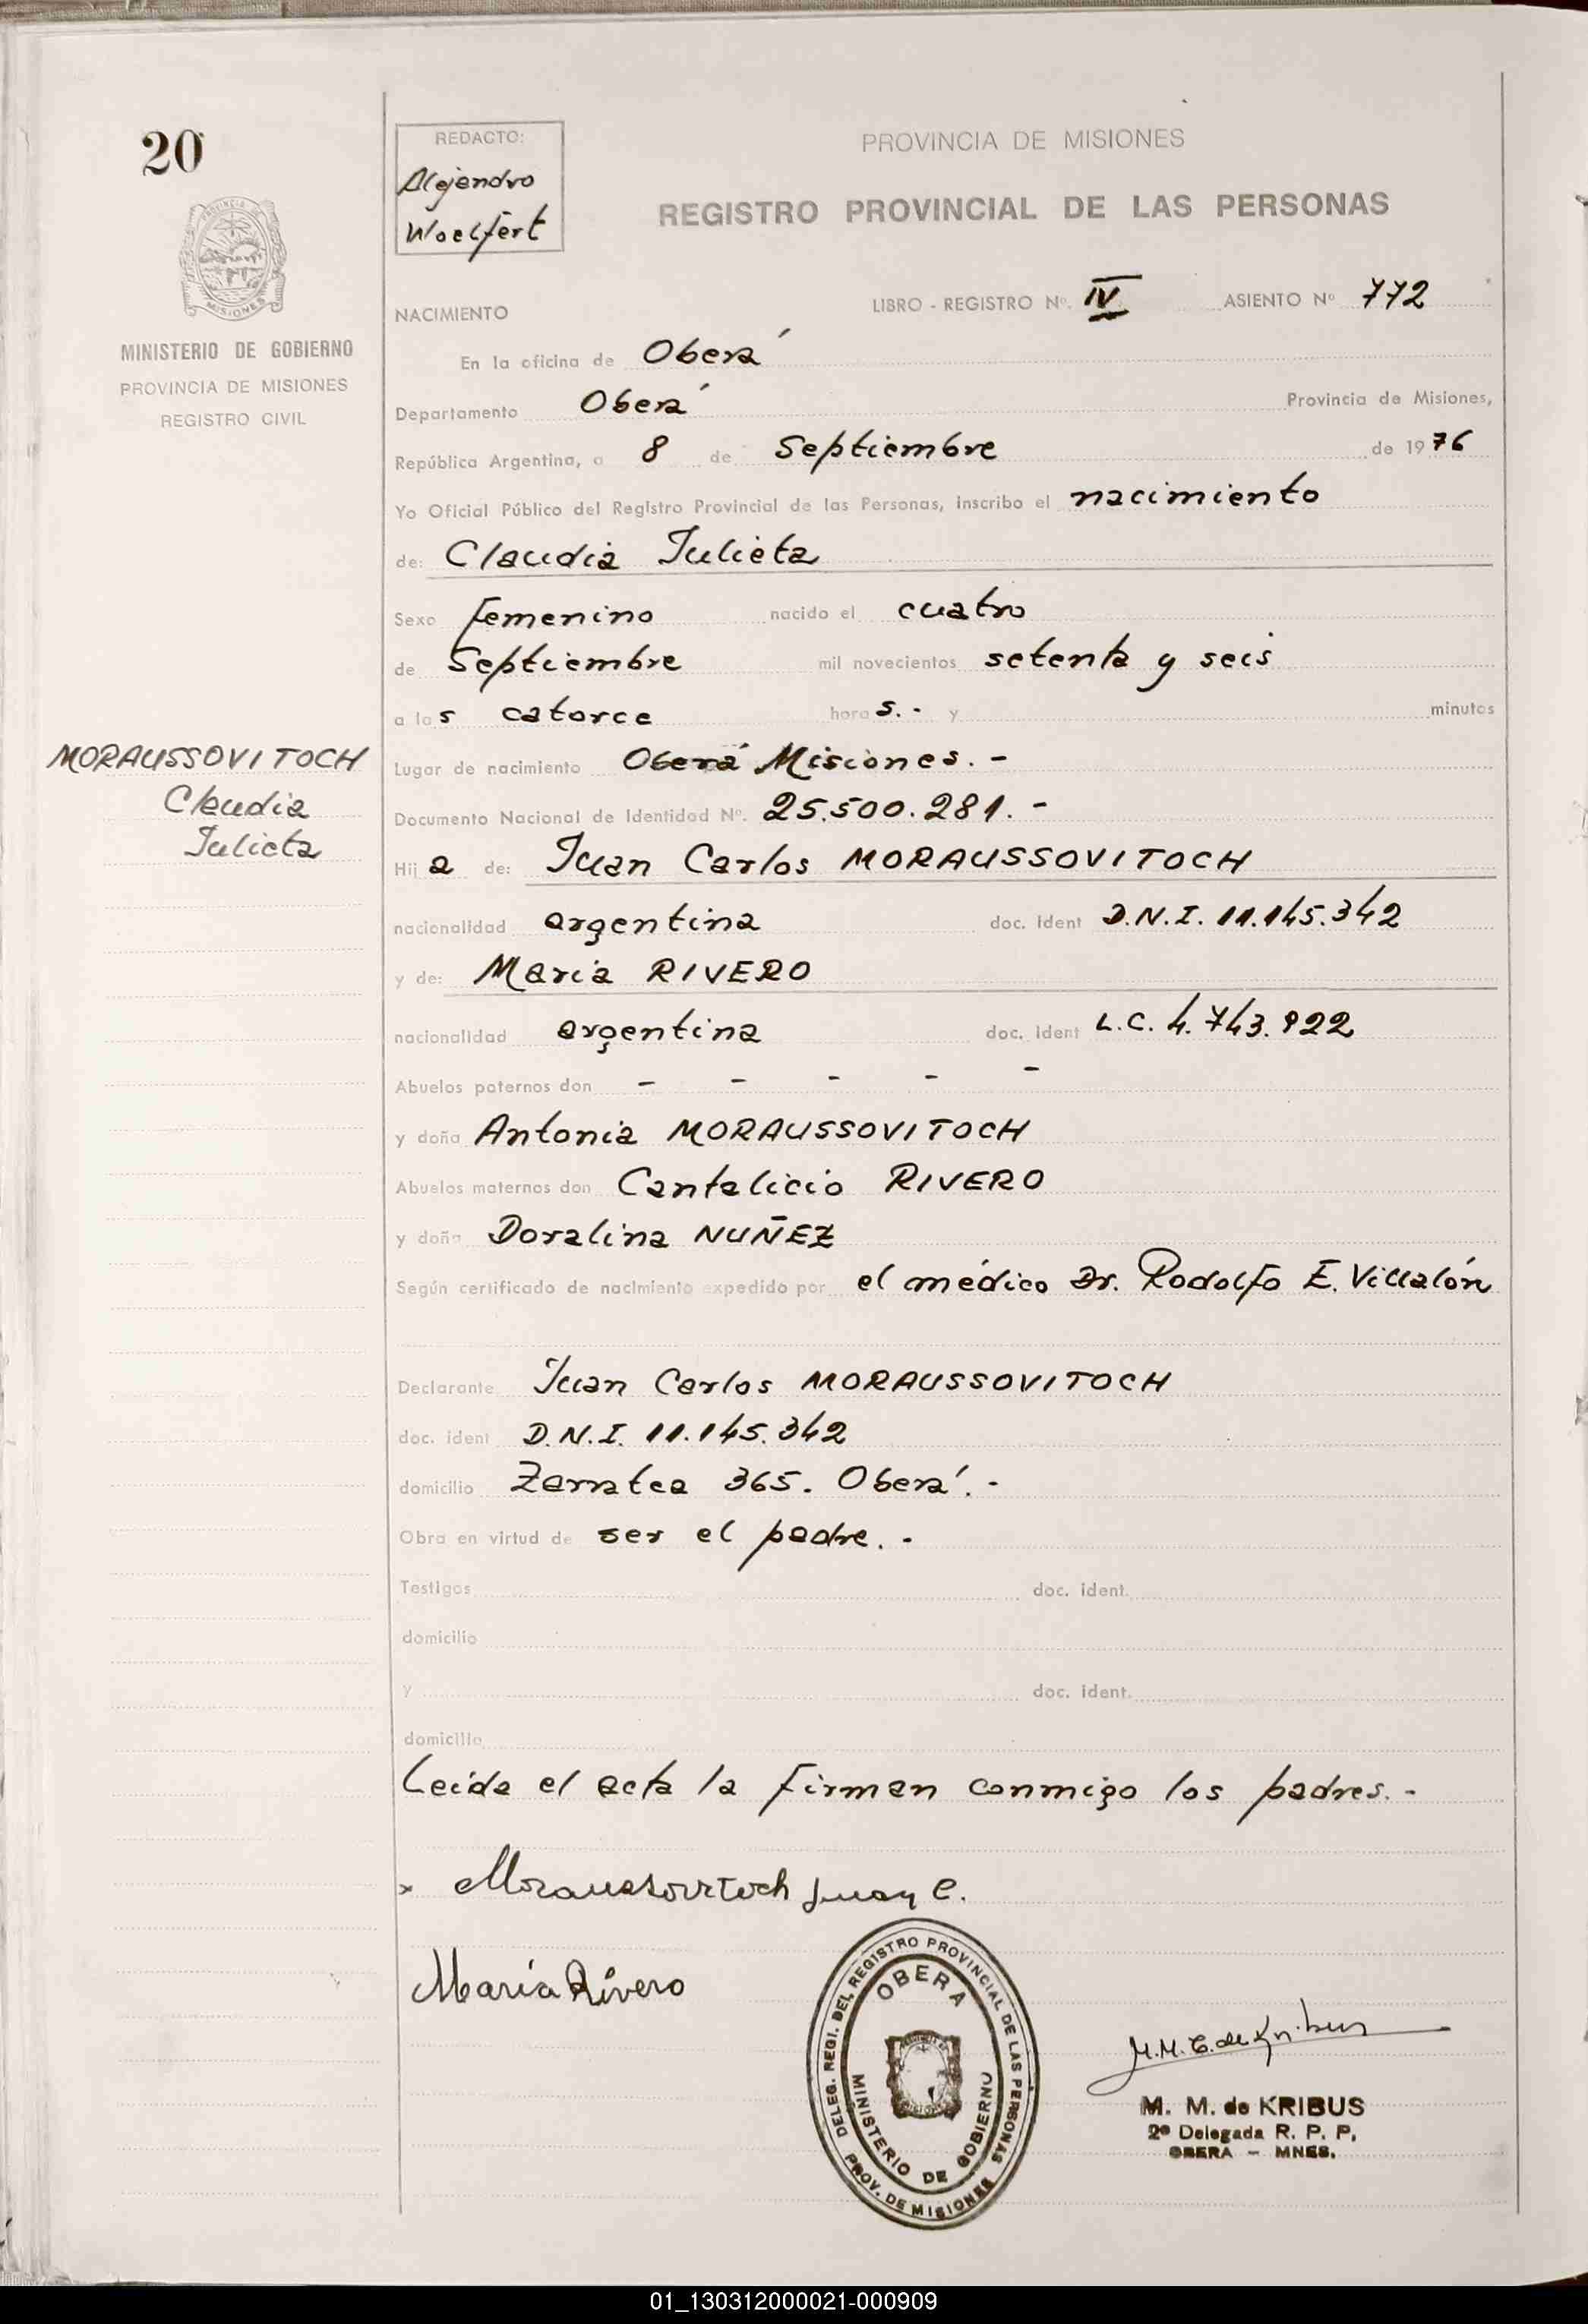 20
PROVINCIA DE MISIONES
MINISTERIO DE GOBIERNO
PROVINCIA DE MISIONES
REGISTRO CIVIL
MORAUSSOVITOCH
Claudia
Julieta
REDACTO:
Alejandro
Woelfert
PROVINCIA DE MISIONES
REGISTRO PROVINCIAL DE LAS PERSONAS
NACIMIENTO LIBRO - REGISTRO Nº. IV ASIENTO Nº 772
En la oficina de Oberá
Departamento Oberá Provincia de Misiones,
República Argentina, a 8 de Septiembre de 1976
Yo Oficial Público del Registro Provincial de las Personas, inscribo el nacimiento
de: Claudia Julieta
Sexo femenino nacido el cuatro
de Septiembre mil novecientos setenta y seis
a las catorce horas.- y minutos
Lugar de nacimiento Oberá Misiones. -
Documento Nacional de Identidad Nº. 25.500.281. -
Hija de: Juan Carlos MORAUSSOVITOCH
nacionalidad argentina doc. ident D.N.I. 11.145.342
y de: Maria RIVERO
nacionalidad argentina doc. ident L.C. 4.743.922
Abuelos paternos don - - - - -
y doña Antonia MORAUSSOVITOCH
Abuelos maternos don Cantalicio RIVERO
y doña Doralina NUÑEZ
Según certificado de nacimiento expedido por el médico Dr. Rodolfo E. Villalón
Declarante Juan Carlos MORAUSSOVITOCH
doc. ident D.N.I. 11.145.342
domicilio Zarratea 365. Oberá. -
Obra en virtud de ser el padre. -
Testigos doc. ident.
domicilio
y doc. ident.
domicilio
Leída el acta la firman conmigo los padres. -
x Moraussovitoch Juan C.
María Rivero
DELEG. REGI. DEL REGISTRO PROVINCIAL DE LAS PERSONAS
PROV. DE MISIONES
OBERA
MINISTERIO DE GOBIERNO
M.M.C. de Kribus
M. M. de KRIBUS
2ª Delegada R. P. P.
OBERA - MNES.
01_130312000021-000909